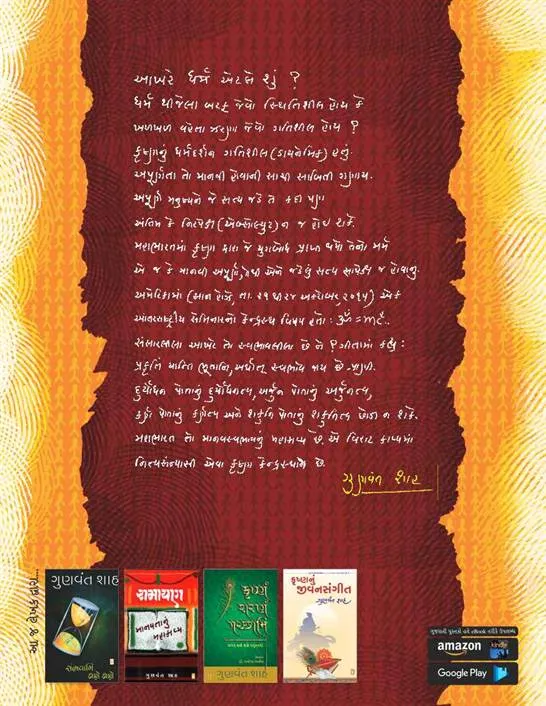 આખરે ધર્મ એટલે શું ?
ધર્મ થીજેલા બરફ જેવો સ્થિતિશીલ હોય કે
ખળખળ વહેતા ઝરણા જેવો ગતિશીલ હોય ?
કૃષ્ણનું ધર્મદર્શન ગતિશીલ (ડાયનેમિક) હતું.
અપૂર્ણતા તો માનવી હોવાની સાચી સાબિતી ગણાય.
અપૂર્ણ મનુષ્યને જે સત્ય જડે તે કદી પણ
અંતિમ કે નિરપેક્ષ (એબ્સોલ્યુટ) ન જ હોઈ શકે.
મહાભારતમાં કૃષ્ણ દ્વારા જે યુગબોધ પ્રાપ્ત થયો તેનો મર્મ
એ જ કે માનવી અપૂર્ણ, તેથી એને જડેલું સત્ય સાપેક્ષ જ હોવાનું.
અમેરિકામાં (સાન હોઝે, તા. ૨૧ થી ૨૪ ઓક્ટોબર, ૨૦૧૫) એક
આંતરરાષ્ટ્રીય સેમિનારનો કેન્દ્રસ્થ વિષય હતો : ૐ = mc².
સંસારલીલા આખરે તો સ્વભાવલીલા છે ને ? ગીતામાં કહ્યું :
પ્રકૃતિં યાન્તિ ભૂતાનિ, અર્થાત્ સ્વભાવે જાય છે પ્રાણી.
દુર્યોધન પોતાનું દુર્યોધનત્વ, અર્જુન પોતાનું અર્જુનત્વ,
કર્ણ પોતાનું કર્ણત્વ અને શકુનિ પોતાનું શકુનિત્વ છોડી ન શકે.
મહાભારત તો માનવસ્વભાવનું મહાકાવ્ય છે. એ વિરાટ કાવ્યમાં
નિત્યસંન્યાસી એવા કૃષ્ણ કેન્દ્રસ્થાને છે.
ગુણવંત શાહ
આ જ લેખક દ્વારા...
ગુણવંત શાહ
સંભવામિ ક્ષણે ક્ષણે
રામાયણ
માનવતાનું મહાકાવ્ય
ગુણવંત શાહ
કૃષ્ણં શરણં ગચ્છામિ
ગુણવંત શાહ
કૃષ્ણનું જીવનસંગીત
ગુણવંત શાહ
ગુજરાતી પુસ્તકો હવે
amazon kindle
Google Play